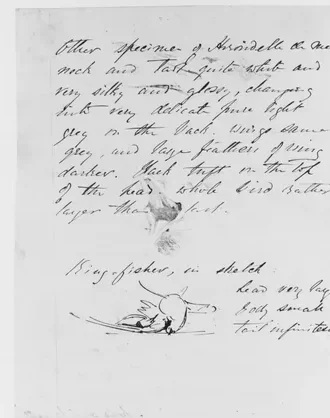 Other specimen of Hirondelle de me
neck and tail quite white and
very silky and glossy, changing
into very delicate pure light
grey on the back. Wings same
grey, and large feathers of wing
darker. Black tuft on the top
of the head. whole bird rather
larger than last.
King-fisher, in sketch
head very lar
body small
tail infinites